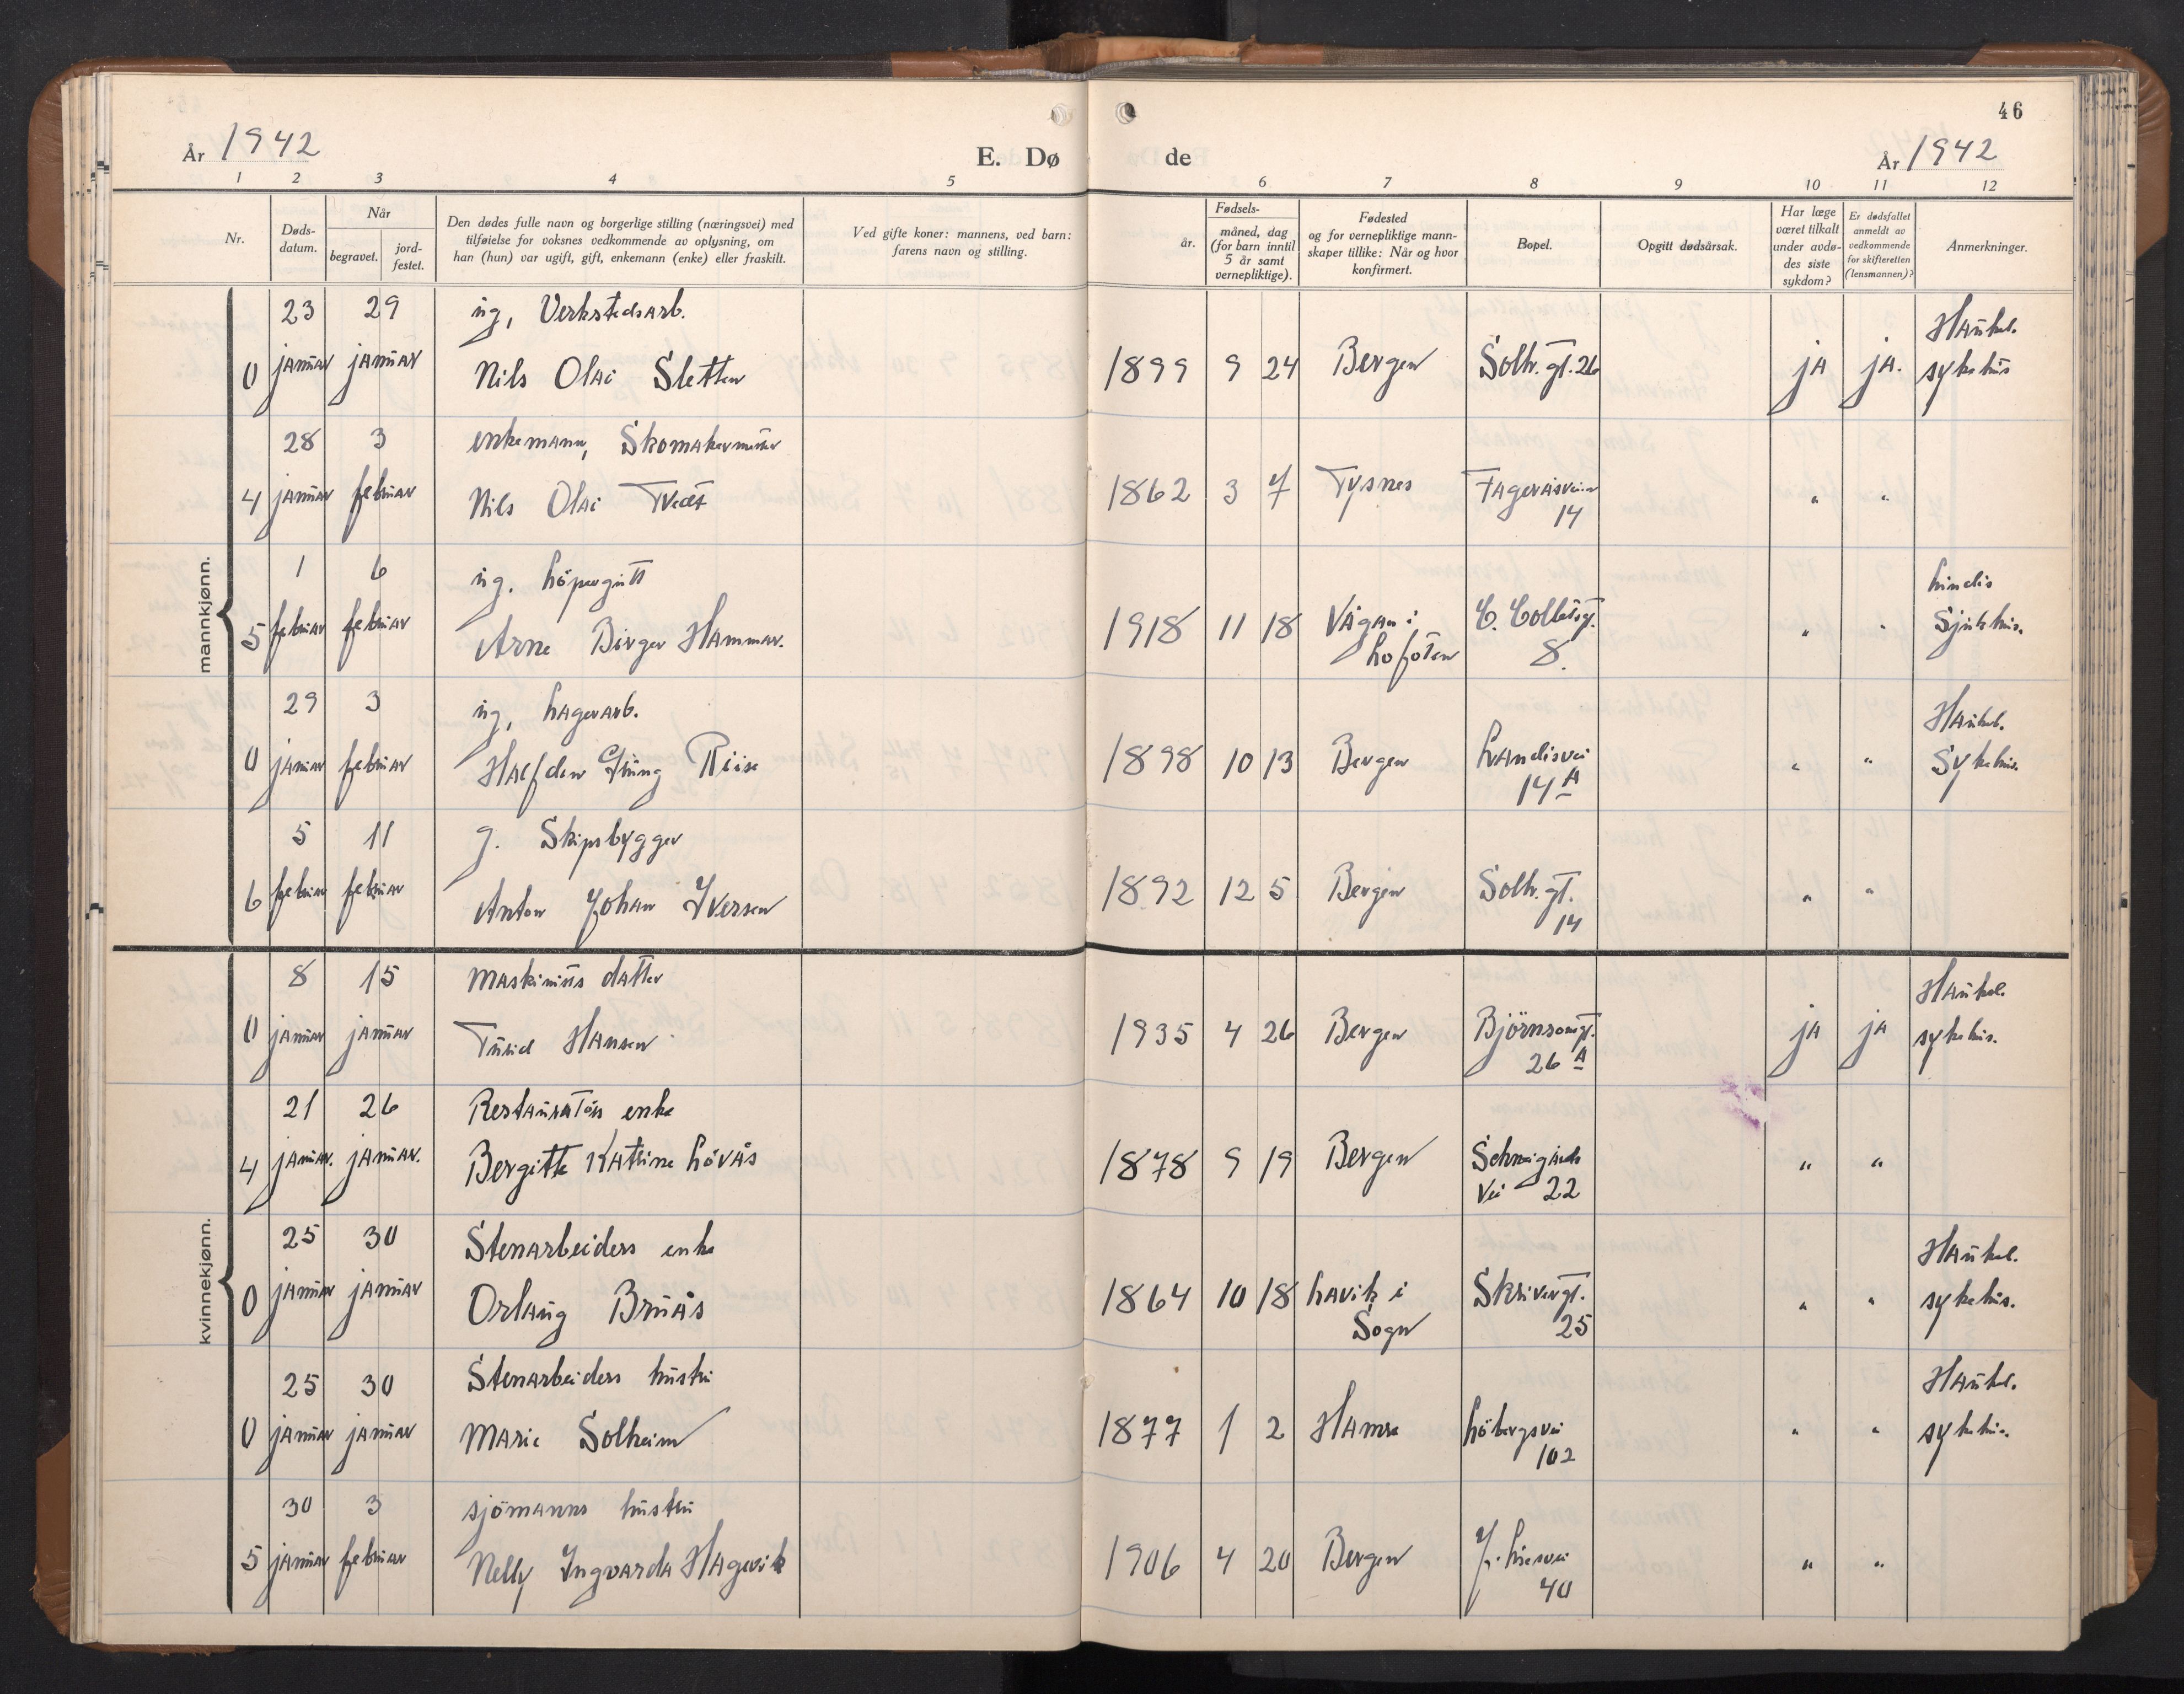 46
År 1942
E. Dø
de
År 1942
1 2 3 4 5 6 7 8 9 10 11 12
Nr.
Døds-
datum.
Når
begravet.
jord-
festet.
Den dødes fulle navn og borgerlige stilling (næringsvei) med
tilføielse for voksnes vedkommende av oplysning, om
han (hun) var ugift, gift, enkemann (enke) eller fraskilt.
Ved gifte koner: mannens, ved barn:
farens navn og stilling.
år.
Fødsels-
måned, dag
(for barn inntil
5 år samt
vernepliktige).
Fødested
og for vernepliktige mann-
skaper tillike: Når og hvor
konfirmert.
Bopel.
Opgitt dødsårsak.
Har læge
været tilkalt
under avdø-
des siste
sykdom?
Er dødsfallet
anmeldt av
vedkommende
for skifteretten
(lensmannen)?
Anmerkninger.
mannkjønn.
23 29 ug, Verkstedsarb. Haukel.
0 januar januar Nils Olai Sletten 1899 9 24 Bergen Solh. gt. 26 ja ja. sykehus
28 3 enkemann, Skomakermester
4 januar februar Nils Olai Tveit 1862 3 7 Tysnes Fageråsveien " "
14
1 6 ug. Löpergutt
5 februar februar Arne Birger Hammer. 1918 11 18 Vågan i C. Colletsgt. " "
Lofoten 8.
Sjukhus.
29 3 ug, Lagerarb. Haukel.
0 januar februar Halfdan Riise 1898 10 13 Bergen " " Sykehus.
14 A
5 11 g. Skipsbygger
6 februar februar Anton Johan Iversen 1892 12 5 Bergen Solh. gt. " "
14
kvinnekjønn.
8 15 Maskinists datter Haukel.
0 januar januar Turid Hansen 1935 4 26 Bergen Björnsonsgt. ja ja sykehus.
26 A
21 26 Restauratörs enke
4 januar. januar. Bergitte Katrine Lövås 1878 9 19 Bergen Schweigårds " "
Vei 22
25 30 Stenarbeiders enke Haukel.
0 januar januar Orlaug Bruås 1864 10 18 Lavik i Skivergt. " " sykehus.
Sogn 25
25 30 Stenarbeiders hustru Haukel.
0 januar januar Marie Solheim 1877 1 2 Hamre Löbergsvei " " sykehus.
102
30 3 sjömanns hustru
5 januar februar Nelly Ingvarda Hagevik 1906 4 20 Bergen J. Liesvei " "
40